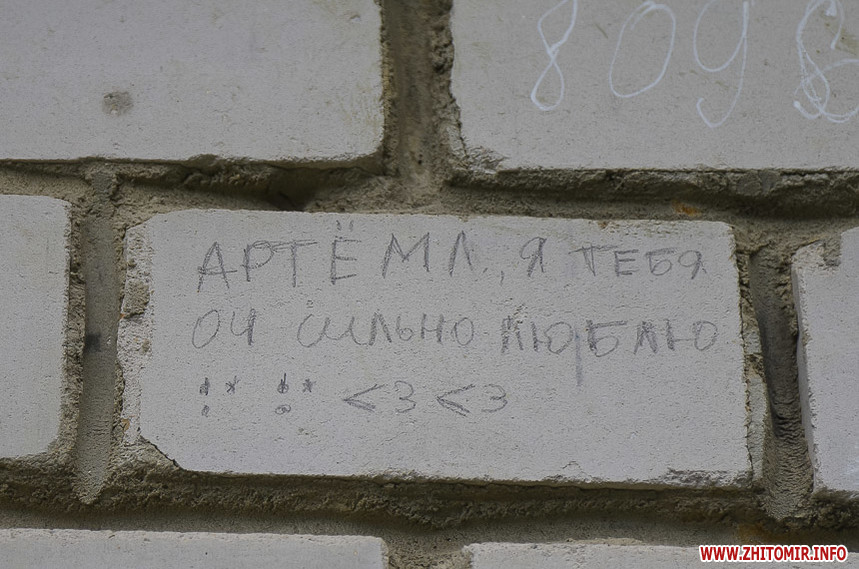 8098
АРТЁМ Л., Я ТЕБЯ
ОЧ СИЛЬНО ЛЮБЛЮ
!* !* <3 <3
WWW.ZHITOMIR.INFO